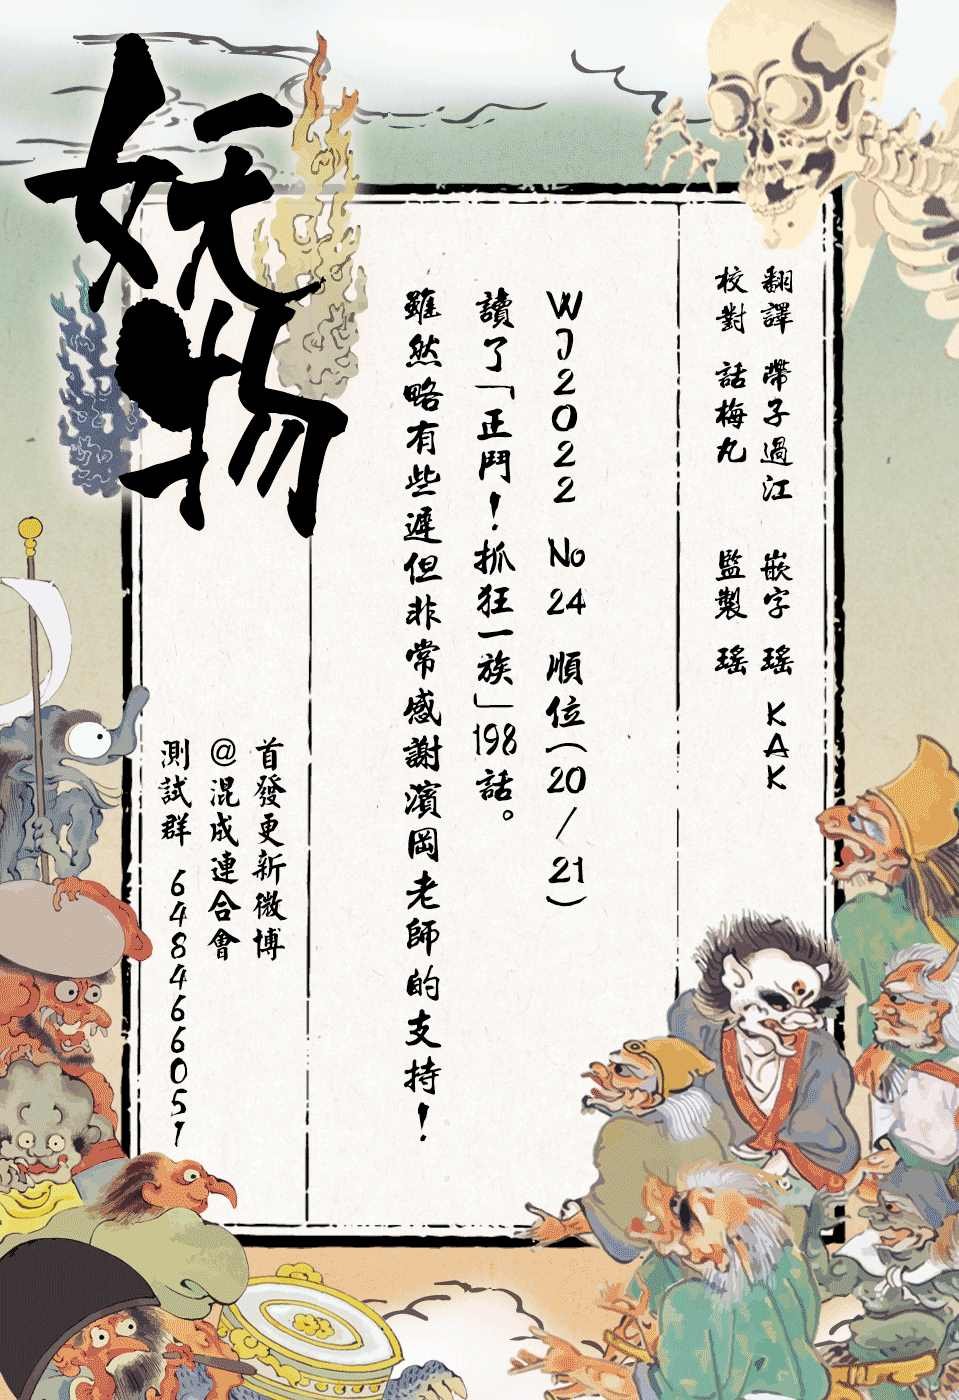 翻譯 帶子過江 嵌字 瑤 KAK
校對 話梅丸 監製 瑤
WJ2022 No24 順位(20/21)
讀了「正門！抓狂一族」198話。
雖然略有些遲但非常感謝濱岡老師的支持！
妖物
首發更新微博
@混成連合會
測試群 648466051